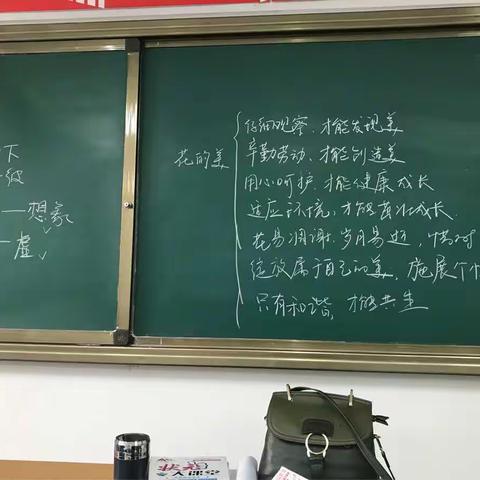 下
级
——想象
—虚
花的美
仔细观察、才能发现美
辛勤劳动、才能创造美
用心呵护、才能健康成长
适应环境,才能茁壮成长
花易凋谢.岁月易逝,惜时
绽放属于自己的美,施展个
只有和谐,才能共生
状元
大课堂